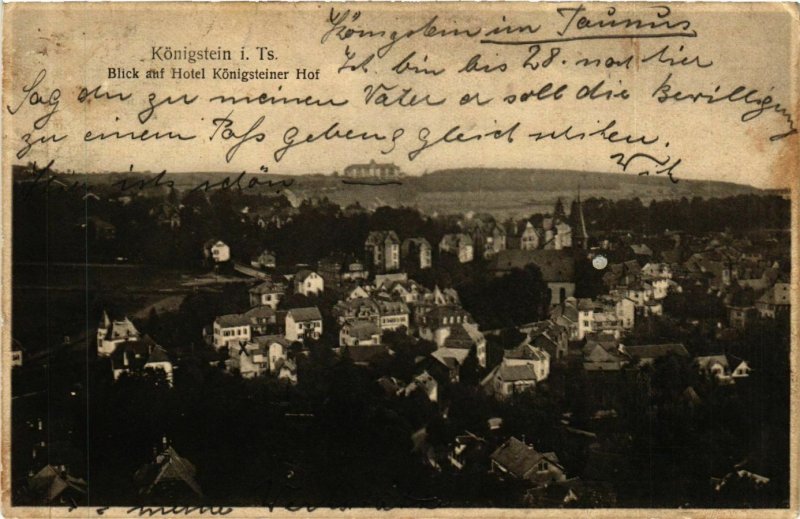 Königstein im Taunus
Königstein i. Ts.
Blick auf Hotel Königsteiner Hof
Ich bin bis 28. noch hier
Sag du zu meinen Vater er soll die Bewilligung
zu einem Paß geben gleich
ist schön
meine